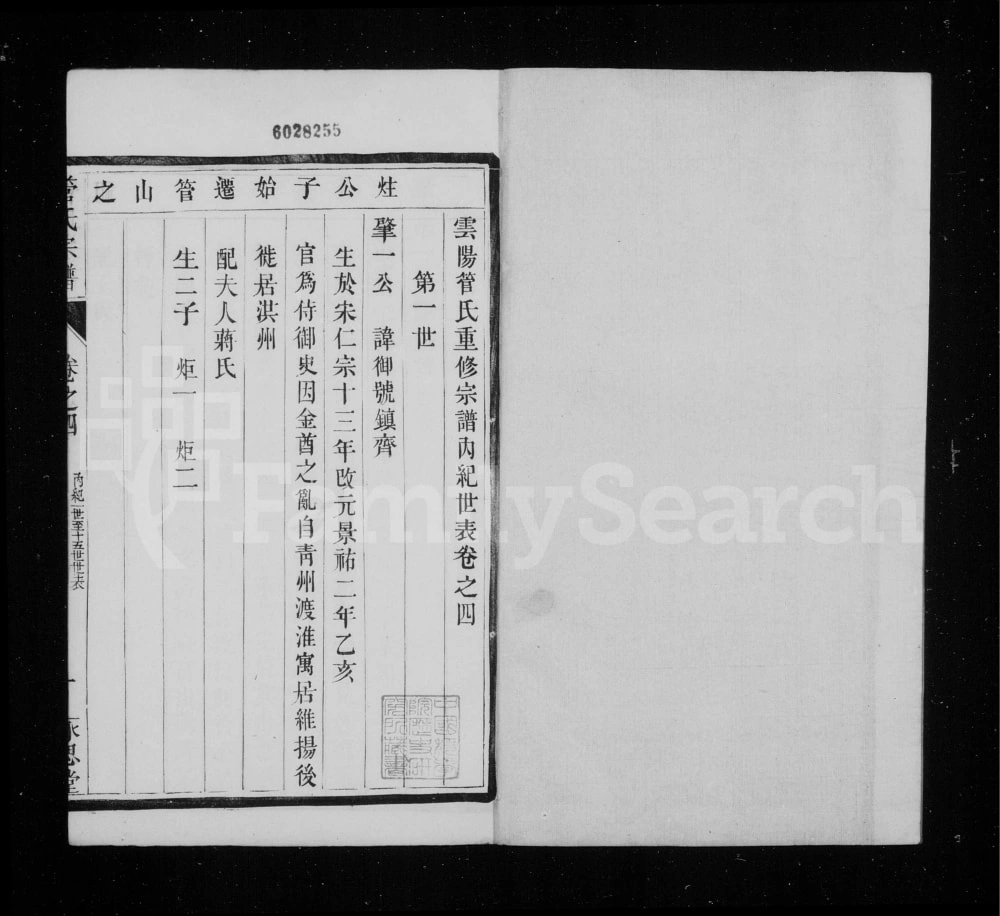 6028255
炷公子始遷管山之
雲陽管氏重修宗譜內紀世表卷之四
第一世
肇一公 諱御號鎮齊
生於宋仁宗十三年改元景祐二年乙亥
官爲侍御史因金酋之亂自靑州渡淮寓居維揚後
徙居淇州
配夫人蔣氏
生二子 炬一 炬二
管氏宗譜 卷之四 內紀一世至十五世世表 一 永思堂
FamilySearch